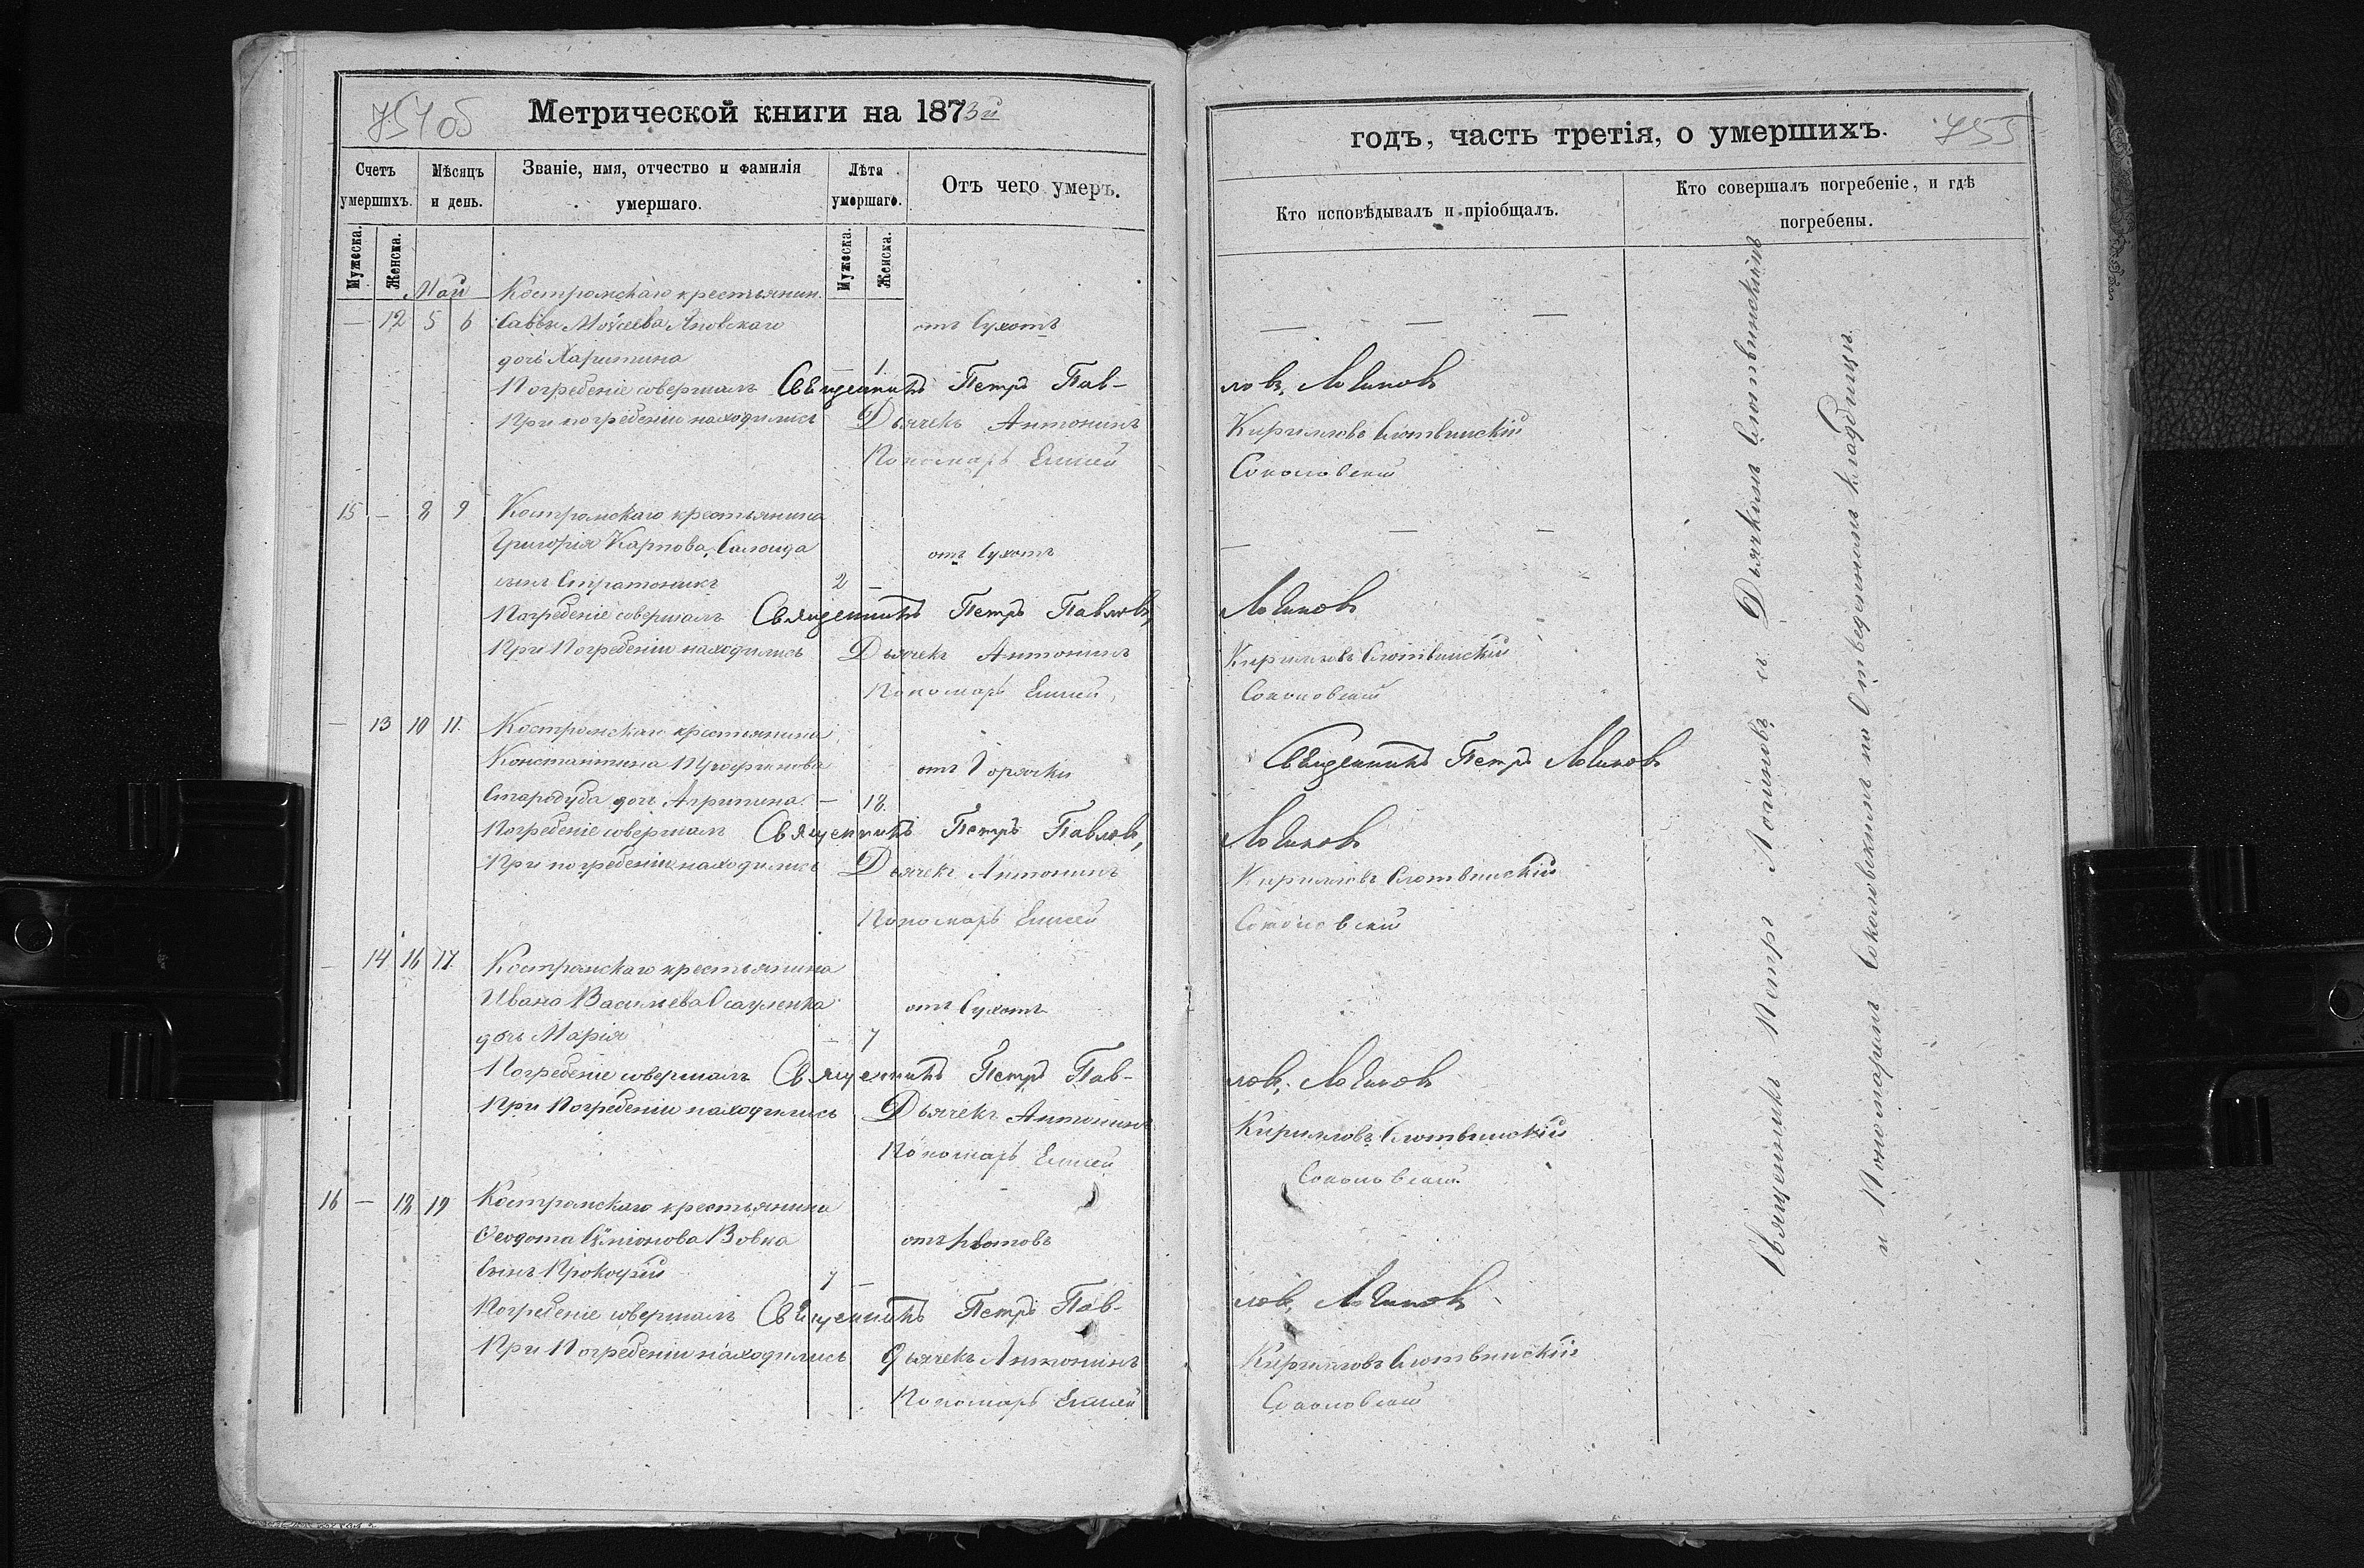 754 об
Метрической книги на 1873й
Счетъ умершихъ.
Мѣсяцъ и день.
Званіе, имя, отчество и фамилія умершаго.
Лѣта умершаго.
Отъ чего умеръ.
Мужеска.
Женска.
Мужеска.
Женска.
Май
Костромскаго крестьянин.
— 12 5 6 Саввы Моисеева отъ Сухотъ
дочь Харитина — 1
Погребеніе совершалъ Священникъ Петръ Пав-
При погребеніи находились Дьячекъ Антонинъ
Пономарь Елисей
15 — 8 9 Костромскаго крестьянина
Григорія Карпова отъ Сухотъ
сынъ Стратоникъ 2 —
Погребеніе совершалъ Священникъ Петръ Павловъ,
При Погребеніи находились Дьячекъ Антонинъ
Пономарь Елисей
— 13 10 11. Костромскаго крестьянина
Константина отъ Горячки
Стародуба дочь Агрипина — 18.
Погребеніе совершалъ Священникъ Петръ Павловъ,
При погребеніи находились Дьячекъ Антонинъ
Пономарь Елисей
— 14 16 17. Костромскаго крестьянина
Ивана Васильева Осауленка отъ Сухотъ
дочь Марія — 7
Погребеніе совершалъ Священникъ Петръ Пав-
При Погребеніи находились Дьячекъ Антонинъ
Пономарь Елисей
16 — 18 19 Костромскаго крестьянина
Ѳеодота Вовка отъ
Сынъ Прокофій 7 —
Погребеніе совершалъ Священникъ Петръ Пав-
При Погребеніи находились дьячекъ Антонинъ
Пономарь Елисей
годъ, часть третія, о умершихъ.
755
Кто исповѣдывалъ и пріобщалъ.
Кто совершалъ погребеніе, и гдѣ погребены.
— — —
ловъ, Логиновъ
Кирилловъ Слотвинскій
Соколовскій
— — —
Логиновъ
Кирилловъ Слотвинскій
Соколовскій
Священникъ Петръ Логиновъ
Логиновъ
Кирилловъ Слотвинскій
Соколовскій
ловъ, Логиновъ
Кирилловъ Слотвинскій
Соколовскій
ловъ, Логиновъ
Кирилловъ Слотвинскій
Соколовскій
Священникъ Петръ Логиновъ съ Дьячкомъ Слотвинскимъ
и Пономаремъ Соколовскимъ на Отведенномъ кладбищѣ.